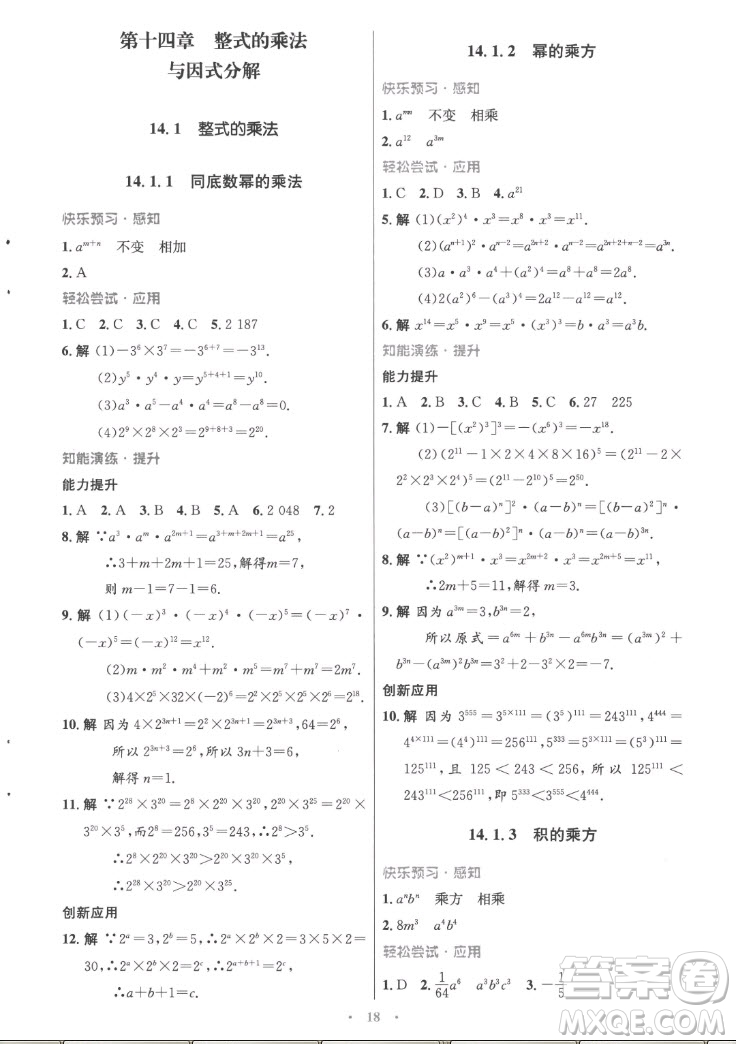 第十四章 整式的乘法
与因式分解
14.1 整式的乘法
14.1.1 同底数幂的乘法
快乐预习·感知
1.aᵐ⁺ⁿ 不变 相加
2.A
轻松尝试·应用
1.C 2.C 3.C 4.C 5.2 187
6.解 (1)-3⁶×3⁷=-3⁶⁺⁷=-3¹³.
(2)y⁵·y⁵·y=y⁵⁺⁵⁺¹=y¹¹.
(3)a³·a⁵-a⁴·a⁴=a⁸-a⁸=0.
(4)2⁹×2⁸×2³=2⁹⁺⁸⁺³=2²⁰.
知能演练·提升
能力提升
1.A 2.A 3.B 4.A 5.A 6.2 048 7.2
8.解 ∵a³·aᵐ·a²ᵐ⁺¹=a³⁺ᵐ⁺²ᵐ⁺¹=a²⁵,
∴3+m+2m+1=25,解得m=7;
则 m-1=7-1=6.
9.解 (1)(-x)³·(-x)⁴·(-x)⁵=(-x)⁷·
(-x)⁵=(-x)¹²=x¹².
(2)m·m²·m⁴+m²·m⁵=m⁷+m⁷=2m⁷.
(3)4×2⁵×32×(-2)⁶=2²×2⁵×2⁵×2⁶=2¹⁸.
10.解 因为 4×2³ⁿ⁺¹=2²×2³ⁿ⁺¹=2³ⁿ⁺³,64=2⁶,
所以 2³ⁿ⁺³=2⁶,所以 3n+3=6,
解得 n=1.
11.解 ∵2²⁸×3²⁰=2⁸×2²⁰×3²⁰,2²⁰×3²⁵=2²⁰×
3²⁰×3⁵,而 2⁸=256,3⁵=243,∴2⁸>3⁵.
∴2⁸×2²⁰×3²⁰>2²⁰×3²⁰×3⁵.
∴2²⁸×3²⁰>2²⁰×3²⁵.
创新应用
12.解 ∵2ᵃ=3,2ᵇ=5,∴2ᵃ×2ᵇ×2=3×5×2=
30,∴2ᵃ⁺ᵇ⁺¹=30.又 2ᶜ=30,∴2ᵃ⁺ᵇ⁺¹=2ᶜ,
∴a+b+1=c.
14.1.2 幂的乘方
快乐预习·感知
1.aᵐⁿ 不变 相乘
2.a¹² a³ᵐ
轻松尝试·应用
1.C 2.D 3.B 4.a²¹
5.解 (1)(x²)⁴·x³=x⁸·x³=x¹¹.
(2)(aⁿ⁺¹)²·aⁿ⁻²=a²ⁿ⁺²·aⁿ⁻²=a³ⁿ.
(3)a·a³·a⁴+(a²)⁴=a⁸+a⁸=2a⁸.
(4)2(a²)⁴+(a⁴)²=2a⁸+a⁸=3a⁸.
6.解 x¹⁴=x⁵·x⁹=x⁵·(x³)³=mn³.
知能演练·提升
能力提升
1.A 2.B 3.A 4.B 5.16 6.27 225
7.解 (1)-[(x²)³]³=-(x⁶)³=-x¹⁸.
(2)(2¹¹-1×2×4×8×16)⁵=(2¹¹-2×2²×
2³×2⁴)⁵=(2¹¹-2¹⁰)⁵=(2¹⁰)⁵=2⁵⁰.
(3)[(a-b)ᵐ]²·[(a-b)²]ⁿ=(a-b)²ᵐ·
(a-b)²ⁿ=(a-b)²ᵐ⁺²ⁿ.
8.解 ∵(x²)ᵐ⁺¹·x³=x²ᵐ⁺²·x³=x²ᵐ⁺⁵=x¹¹,
∴2m+5=11,解得 m=3.
9.解 因为 a³ᵐ=3,b³ⁿ=2,
所以原式=a⁶ᵐ+b⁶ⁿ-a⁶ᵐ·b⁶ⁿ=3²+2²-
3²×2²=-23.
创新应用
10.解 因为 3⁵⁵⁵=3⁵ˣ¹¹¹=(3⁵)¹¹¹=243¹¹¹,4⁴⁴⁴=
4⁴ˣ¹¹¹=(4⁴)¹¹¹=256¹¹¹,5³³³=5³ˣ¹¹¹=(5³)¹¹¹=
125¹¹¹,且 125¹¹¹<243¹¹¹<256¹¹¹,
所以 5³³³<3⁵⁵⁵<4⁴⁴⁴.
14.1.3 积的乘方
快乐预习·感知
1.aⁿbⁿ 乘方 相乘
2.8m³ a⁴b⁴
轻松尝试·应用
1.D 2.1/64 a⁶ a³b³c³ 3.-1/5
18
答案圈
MXQE.COM